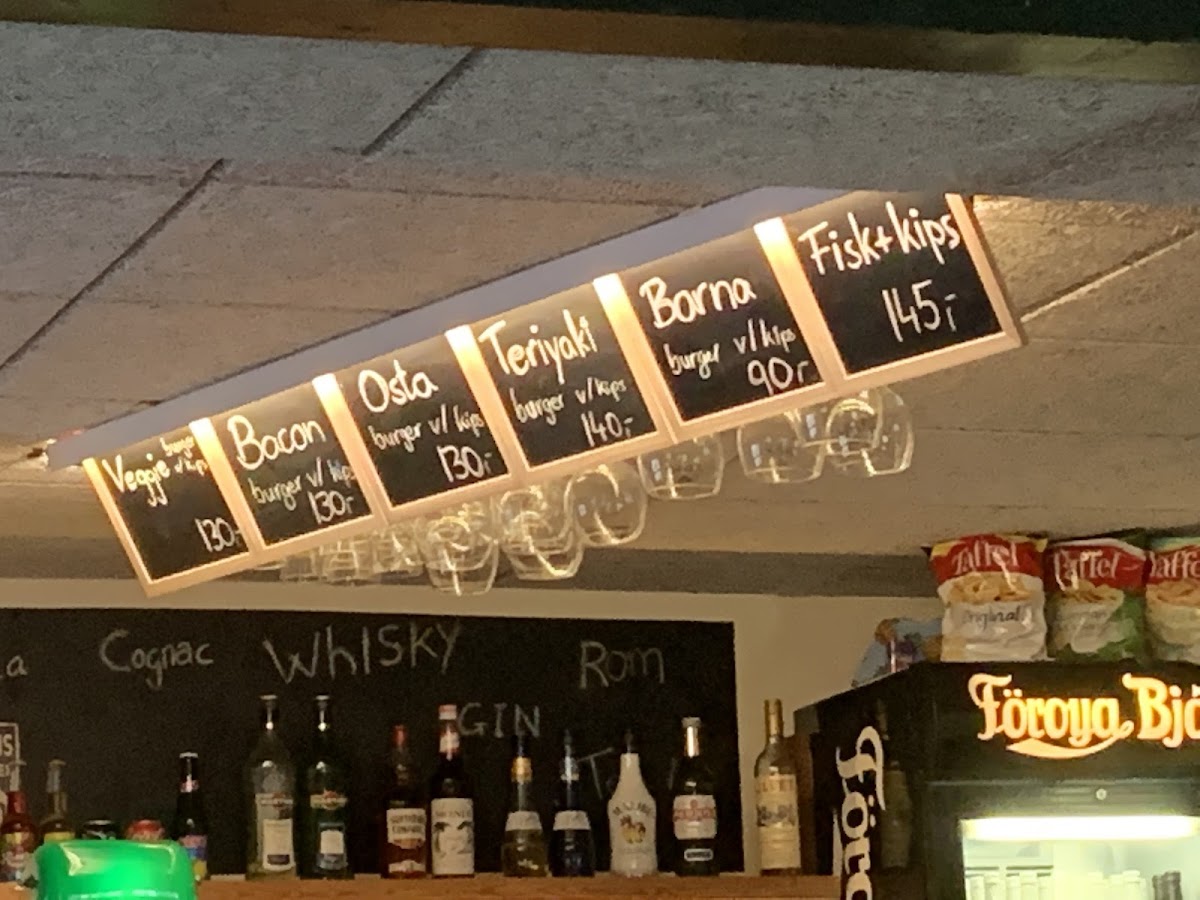 Veggie burger
v/kips
130,-
Bacon
burger v/kips
130,-
Osta
burger v/kips
130,-
Teriyaki
burger v/kips
140,-
Barna
burger v/kips
90,-
Fisk+kips
145,-
Cognac
WhISKY
Rom
GIN
Taffel
Original
Taffel
Föroya
MALIBU